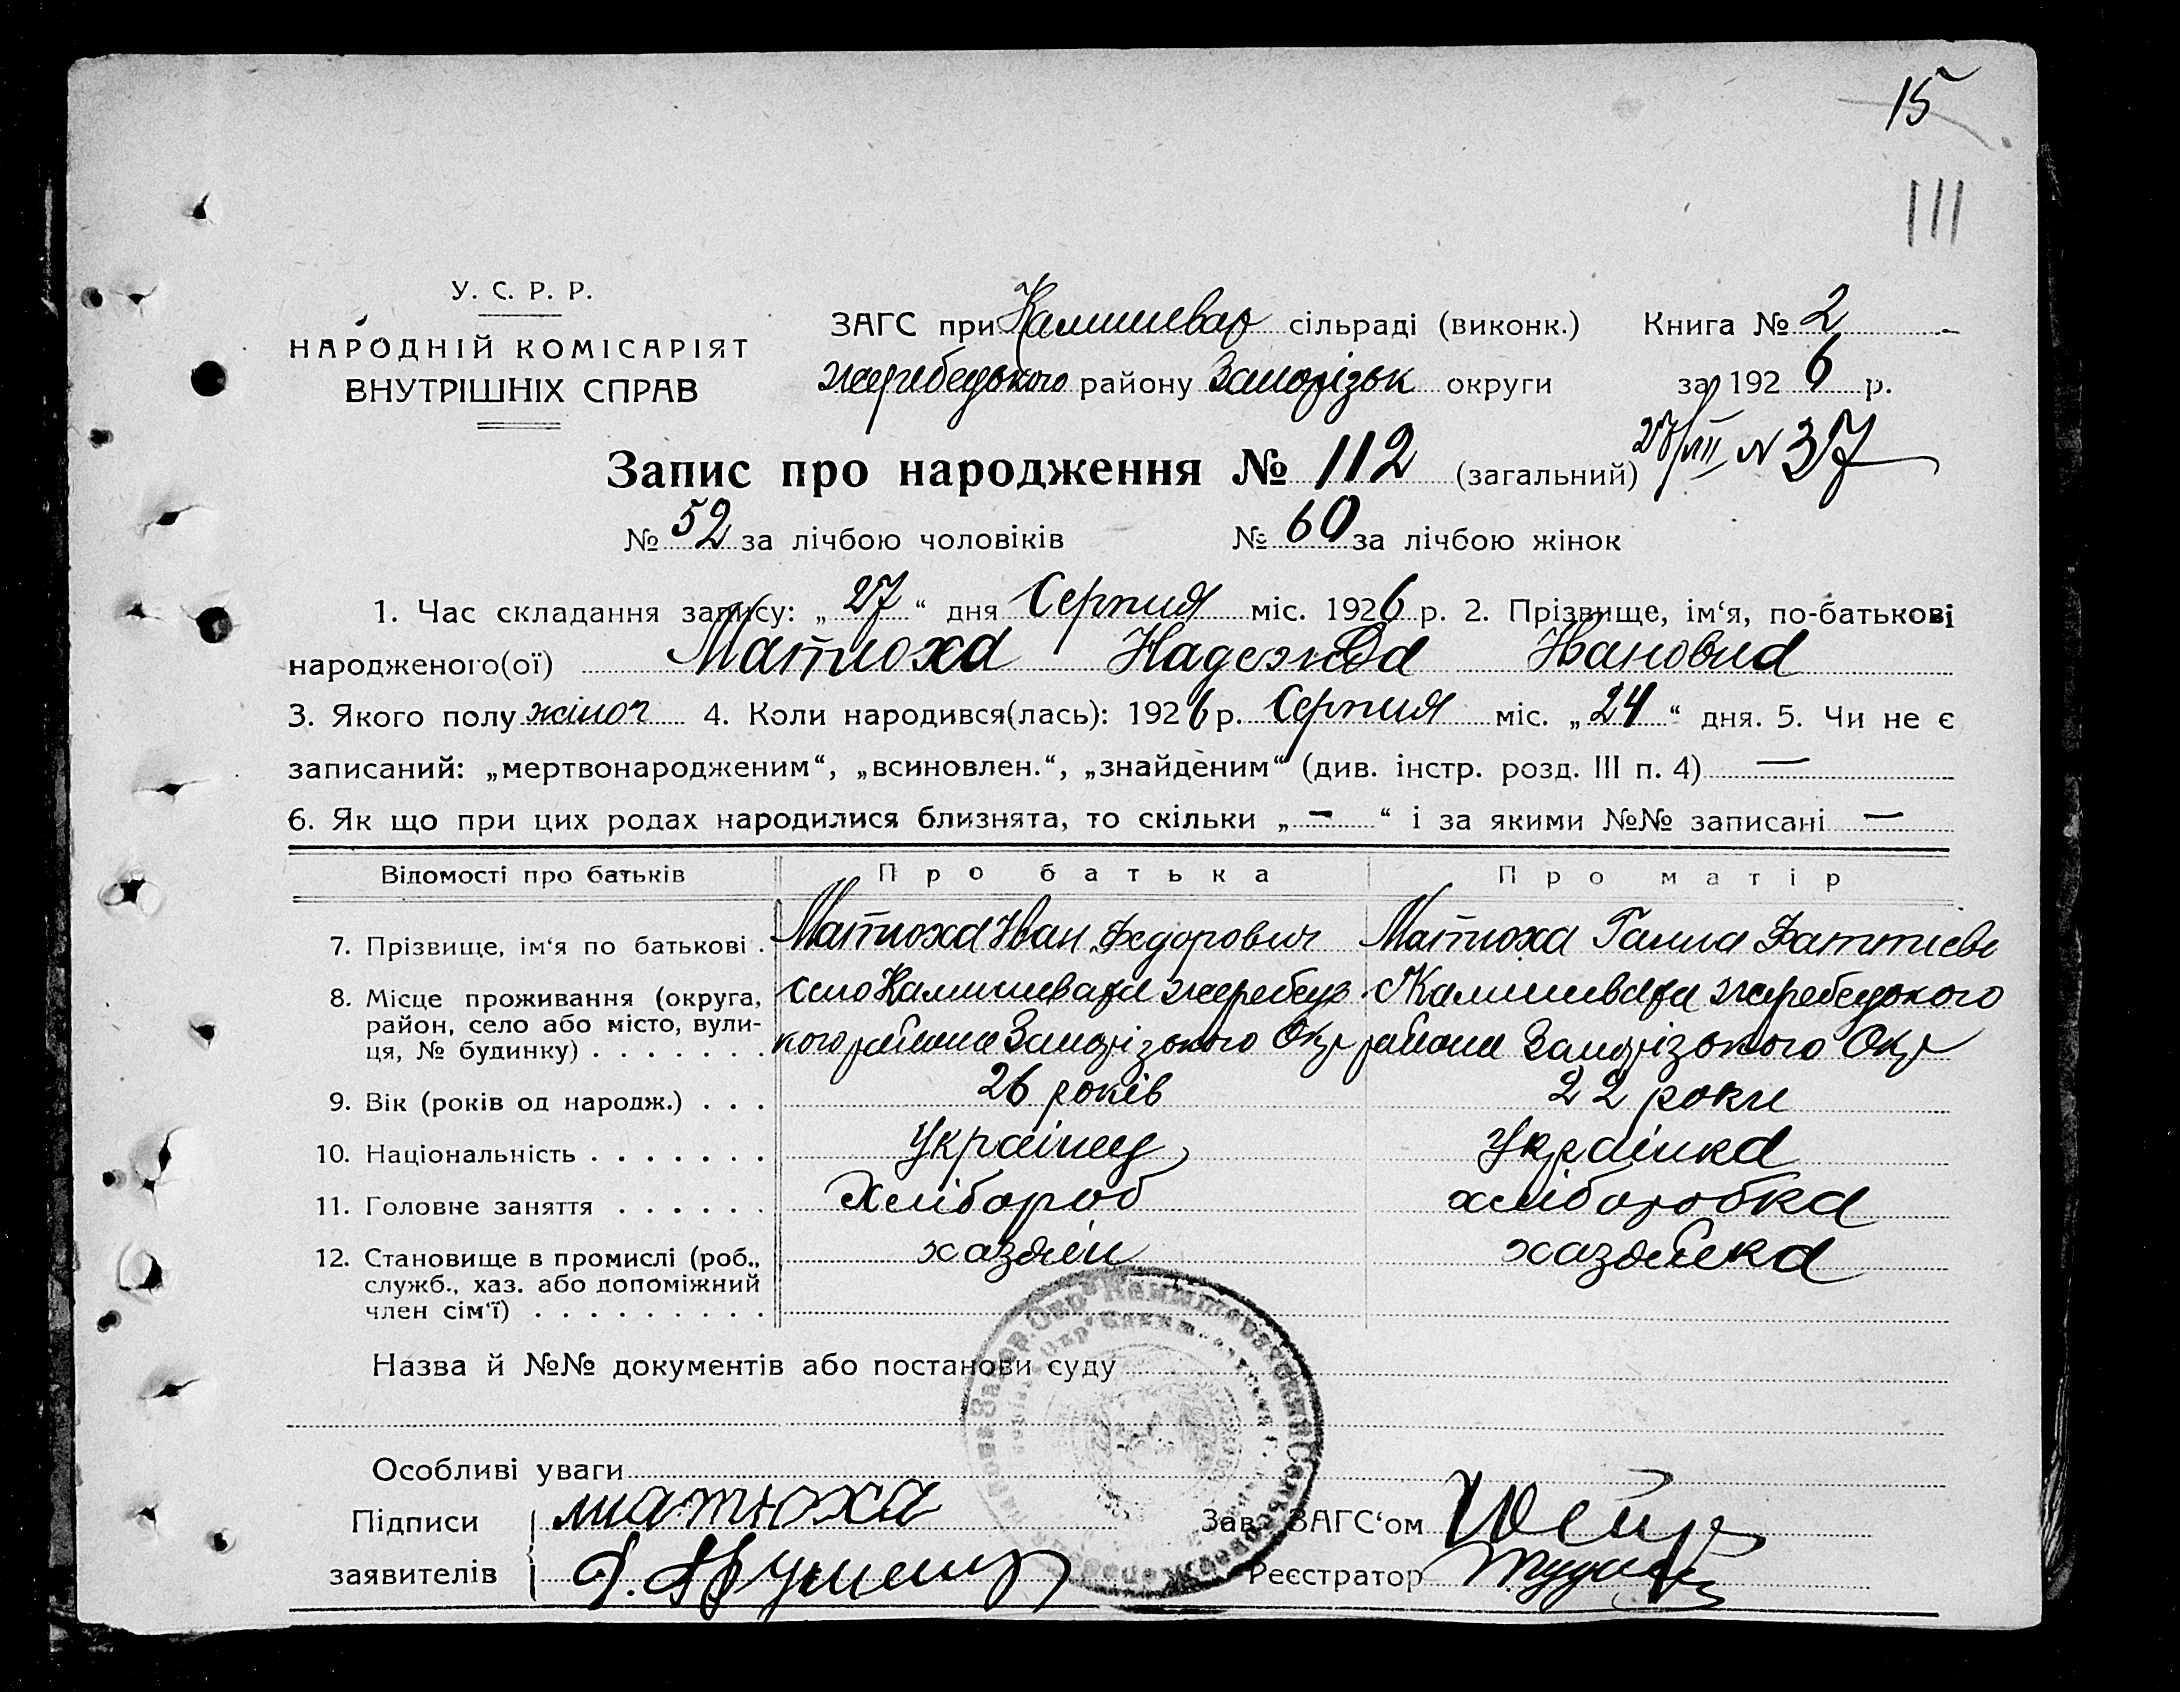 15
III
У. С. Р. Р.
НАРОДНІЙ КОМІСАРІЯТ
ВНУТРІШНІХ СПРАВ
ЗАГС при Камишевар сільраді (виконк.) Книга № 2
жеребецького району Запорізьк округи за 1926 р.
Запис про народження № 112 (загальний) 27/VIII N 37
№ 52 за лічбою чоловіків № 60 за лічбою жінок
1. Час складання запису: „27“ дня Серпня міс. 1926 р. 2. Прізвище, ім‘я, по-батькові
народженого(ої) Матюха Надежда Ивановна
3. Якого полу жіноч 4. Коли народився(лась): 1926 р. Серпня міс. „24“ дня. 5. Чи не є
записаний: „мертвонародженим“, „всиновлен.“, „знайденим“ (див. інстр. розд. III п. 4) —
6. Як що при цих родах народилися близнята, то скільки „—“ і за якими №№ записані —
Відомості про батьків Про батька Про матір
7. Прізвище, ім‘я по батькові . Матюха Иван Федорович Матюха Ганна
8. Місце проживання (округа, село Камишеваха жеребець с Камишеваха жеребецького
район, село або місто, вули-
ця, № будинку) . . . . . . . кого района Запорізького Окр района Запорізького Окр
9. Вік (років од народж.) . . . 26 років 22 роки
10. Національність . . . . . . . Українец Українка
11. Головне заняття . . . . . . Хлібороб хліборобка
12. Становище в промислі (роб., хазяїн хазяйка
служб., хаз. або допоміжний
член сім‘ї) . . . . . . . . .
Назва й №№ документів або постанови суду
Особливі уваги
Підписи матюха Зав. ЗАГС‘ом
заявителів Реєстратор